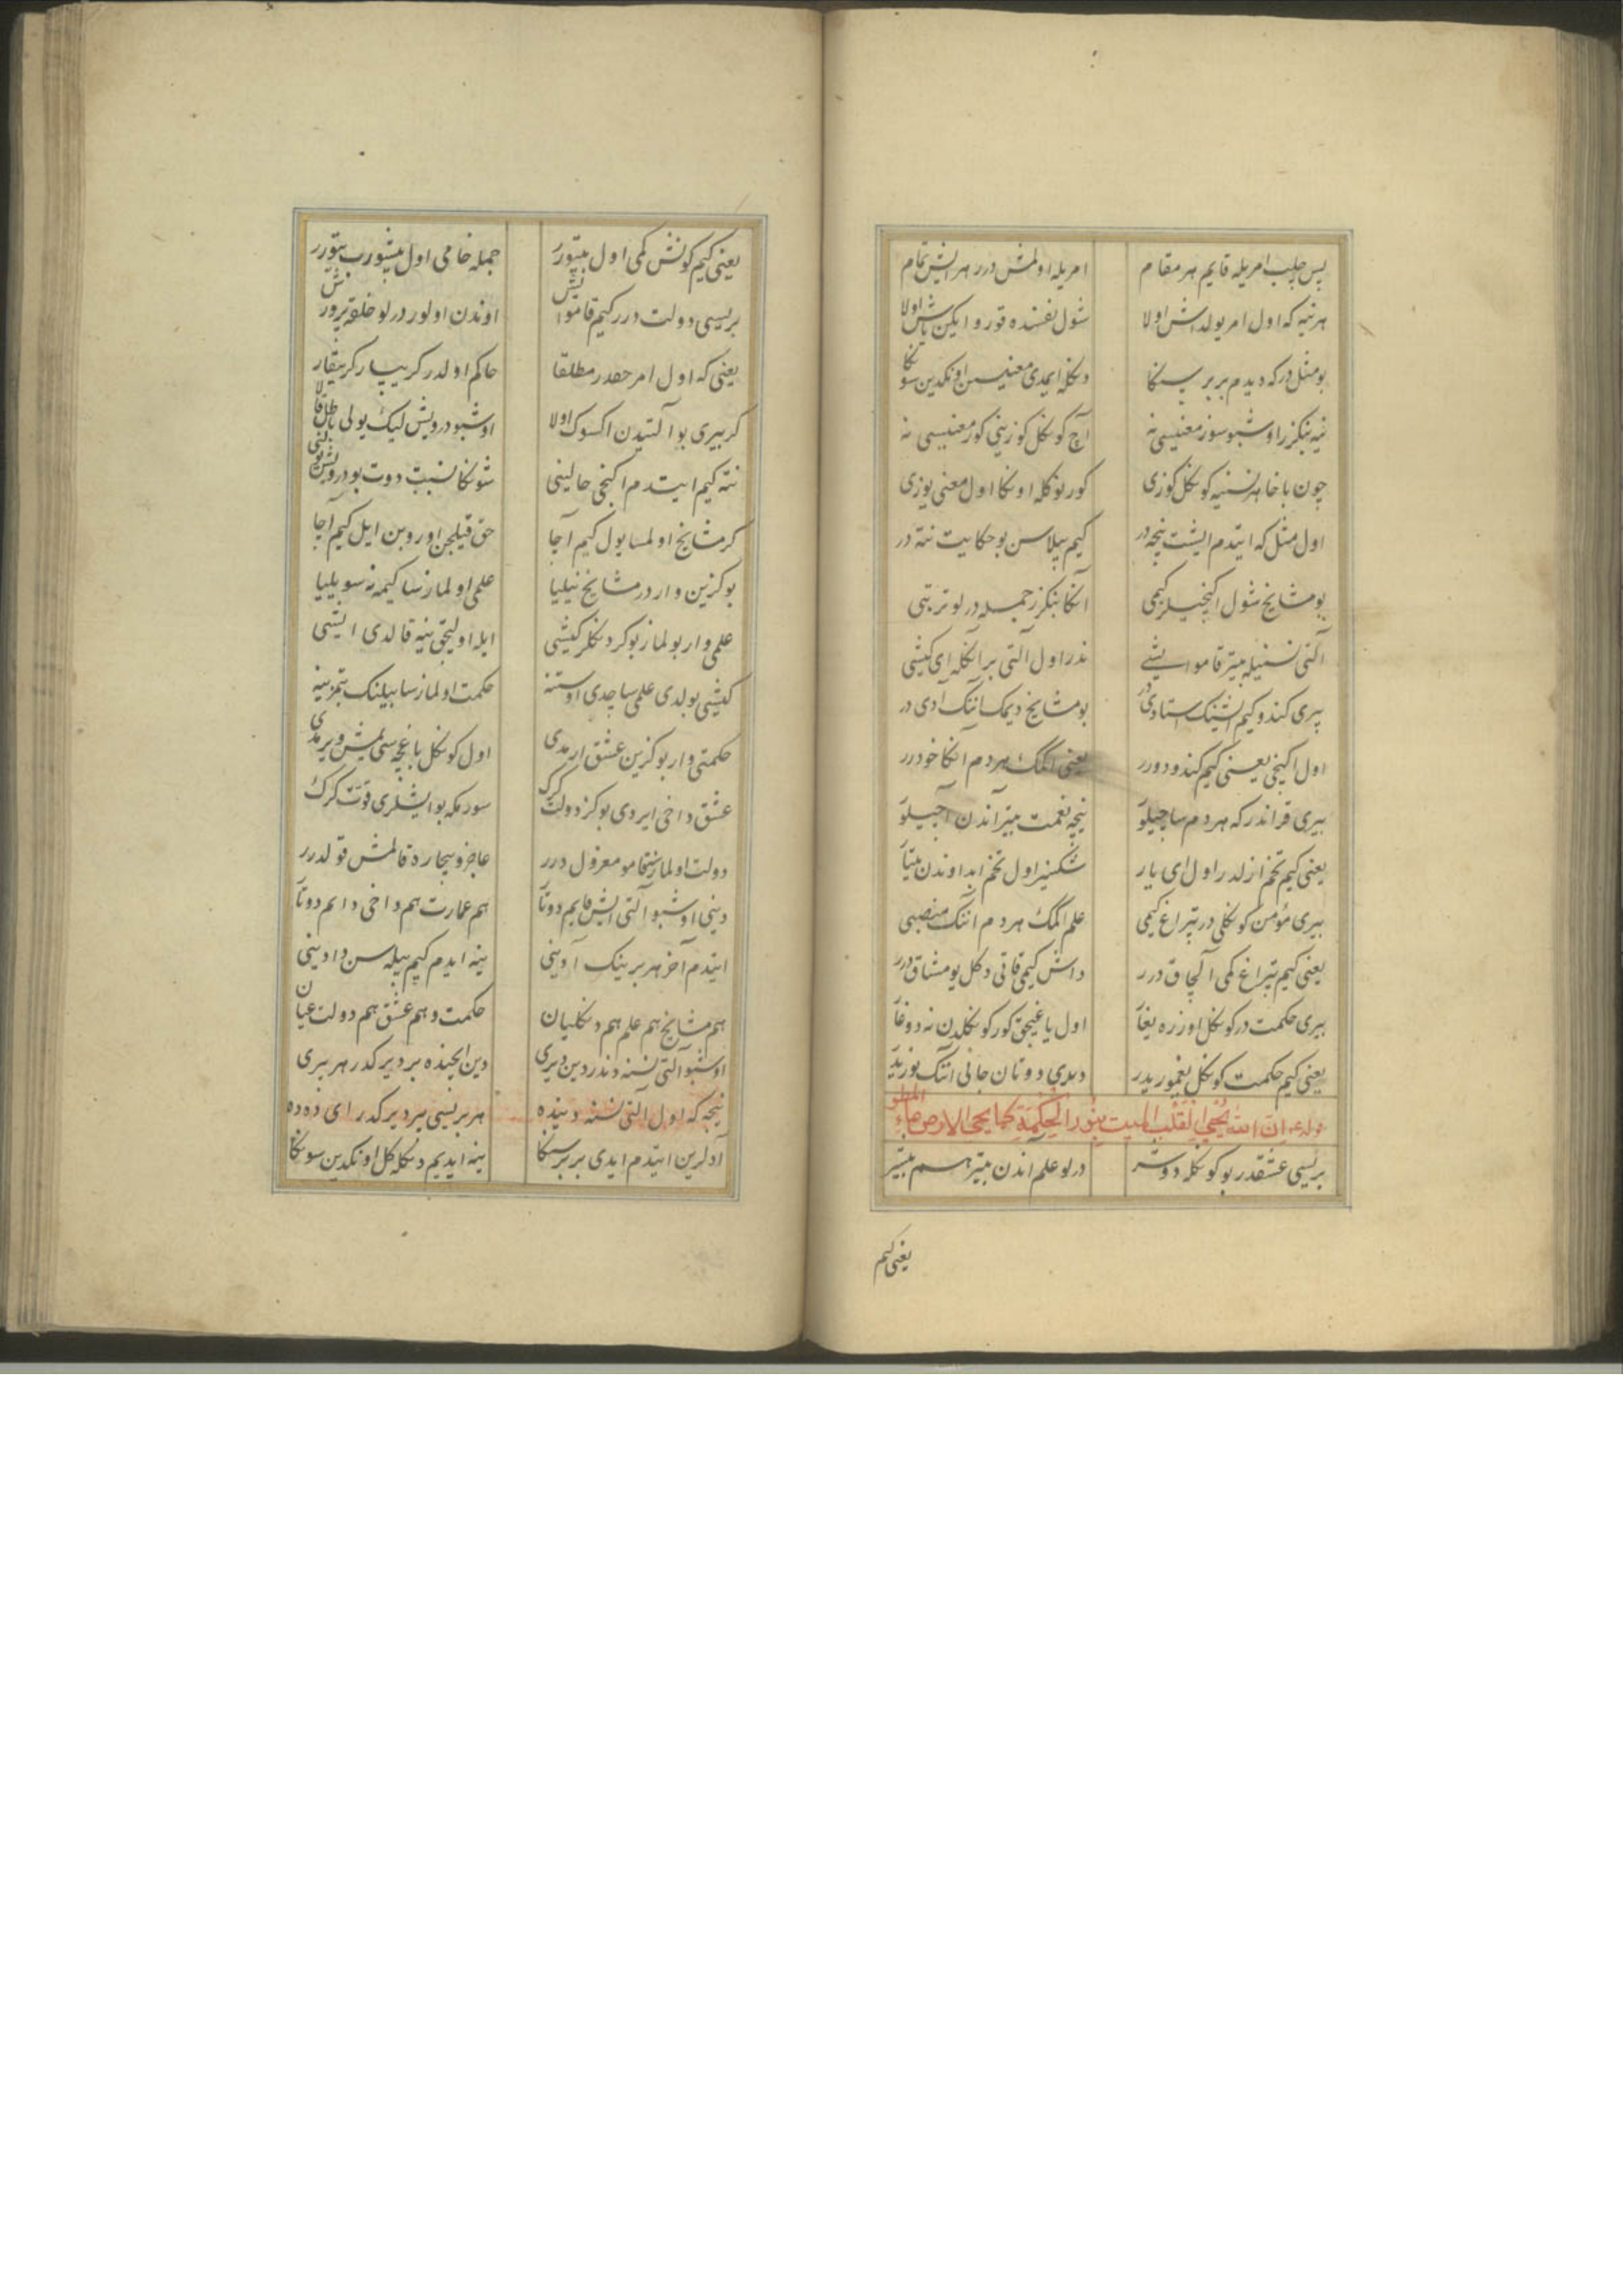 پس چلب امریله قایم هر مقام امریله اولمش درر هر ایش تمام
هر نیه که اول امر یولداش اولا شول نفسنده قورو ایکن یاش اولا
بو مثل در که دیدم بر بر سنکا دکله ایمدی معنیسن اوکدین سونکا
نیه بنکزر اوشبو سوز معنیسی نه آچ کوکل کوزینی کور معنیسی نه
چون باخا هر نسنیه کوکل کوزی کورنو کله اونکا اول معنی یوزی
اول مثل که ایتدم ایشت نیجه در کیم بیلاسن بو حکایت نته در
بو مشایخ شول اکینجیلر کیمی آنکا بنکزر جمله درلو تربتی
آلتی نسنیله بیتر قامو ایشی ندر اول آلتی بر آنکله ای کیشی
پیری کندو کیم ایشنک استادی در بو مشایخ دیمک آننک آدی در
اول اکینجی یعنی کیم کندو دورر یعنی اکمک هر دم آنکا خودرر
بیری قراندر که هر دم ساچیلو نیجه نعمت بیتر آندن آچیلو
یعنی کیم تخم ازلدر اول ای یار شکسیز اول تخم ابد اوندن بیتار
بیری مؤمن کوکلی در تپراغ کیمی علم اکمک هر دم آننک منصبی
یعنی کیم تپراغ کمی آلچاق درر داش کیمی قاتی دکل یومشاق درر
بیری حکمت در کوکل اوزره یغار اول یاغیجق کور کوکلدن نه دوغار
یعنی کیم حکمت کوکل یغموریدر دیری دوتان جانی آننک نوریدر
قوله ع‌م ان الله یحیی القلب المیت بنور الحکمة کما یحی الارض ماء المطر
بریسی عشقدر بو کوکله دوشر درلو علم آندن بیتر هم بیشر
یعنی کیم
یعنی کیم کونش کمی اول بیتورر جمله خامی اول بیشورب بیتورر
بریسی دولت درر کیم قامو ایش اوندن اولور درلو خلقه پرورش
یعنی که اول امر حقدر مطلقا حاکم اولدر کر یپار کر ییقار
کر بیری بو آلتیدن اکسوک اولا اوشبو درویش لیک یولی باطل قالا
نته کیم ایتدم اکینجی حالینی شونکا نسبت دوت بو درویش یولنی
کر مشایخ اولمسا یول کیم آچا حق قیلیجن اوروبن ایل کیم آچا
بو کزین وار در مشایخ نیلیا علمی اولمازسا کیمه نه سویلیا
علمی وار بولماز بو کر دکلر کیشی ایله اولیجق نیه قالدی ایشی
کیشی بولدی علمی ساچدی اوستنه حکمت اولمازسا بیلنک بتمز ینه
حکمتی وار بو کزین عشق ارمدی اول کوکل باغچه سی یمش ویرمدی
عشق داخی ایردی بو کز دولت کرک سورمکه بو ایشلری قوت کرک
دولت اولمازسا قامو معزول درر عاجز و بیچاره قالمش قولدرر
دینی اوشبو آلتی ایش قایم دوتار هم عمارت هم داخی دایم دوتار
ایتدم آخر هر برینک آدینی ینه ایدم کیم بیله سن دادینی
هم مشایخ هم علم هم دکلیان حکمت و هم عشق هم دولت عیان
اوشبو آلتی نسنه دندر دین دیری دین ایچنده بر دیرکدر هر بیری
نیجه که اول آلتی نسنه دینده هر بریسی بیر دیرکدر ای دده
آدلرین ایتدم ایدی بر بر سنکا ینه ایدیم دکله کل اوکدین سونکا